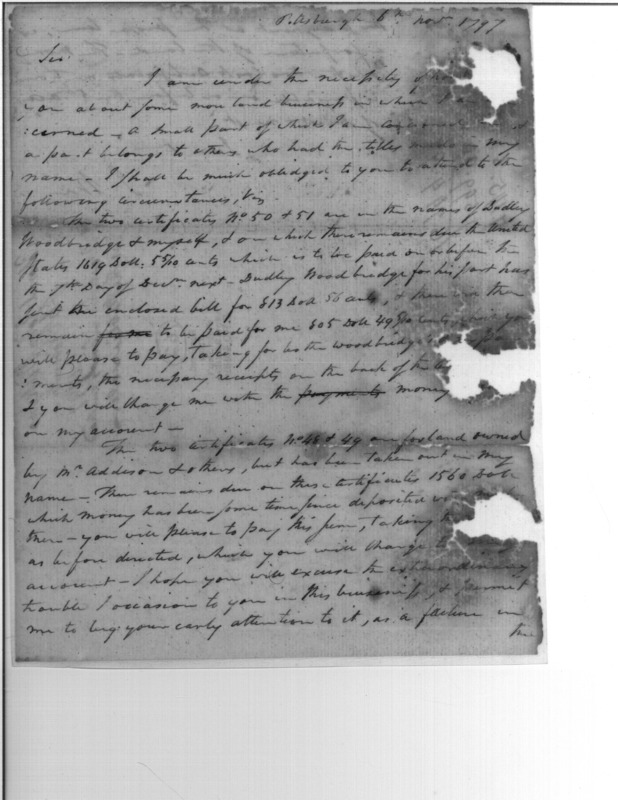 Pittsburgh 6th Novr. 1797
Sir
I am under the necessity of
you about some more land business in which I am
:cerned – a small part of which I am concerned
a part belongs to others who had the titles made in my
name – I shall be much obliged to you to attend to the
following circumstances, Viz
The two certificates No. 50 & 51 are in the names of Dudley
Woodbridge & myself, & on which there remains due the United
States 1619 Doll: 5 5/10 cents which is to be paid on or before the
the 7th Day of Decr. next – Dudley Woodbridge for his part has
sent the enclosed bill for 813 Doll 56 cents, & there will then
remain from me to be paid for me 805 Doll 49 cents,
will please to pay, taking for both the Woodbridge
:ments, the necessary receipts on the back of the
& you will charge me with the payments money
on my account –
The two certificates No. 48 & 49 are for land owned
by Mr. Addison & others, but has been taken out in my
name – There remains due on these certificates 1560 Doll
which money has been some time since deposited
there – you will please to pay this sum, taking
as before directed, which you will charge
account – I hope you will excuse the extraordinary
trouble I occasion to you in this business, & permit
me to beg your early attention to it, as a failure in
the